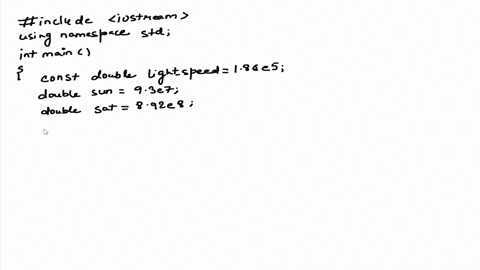 #include <iostream>
using namespace std;
int main()
{ const double lightspeed = 1.86e5;
double sun = 9.3e7;
double sat = 8.92e8;